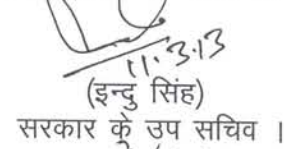 11.3.13
(इन्दु सिंह)
सरकार के उप सचिव ।